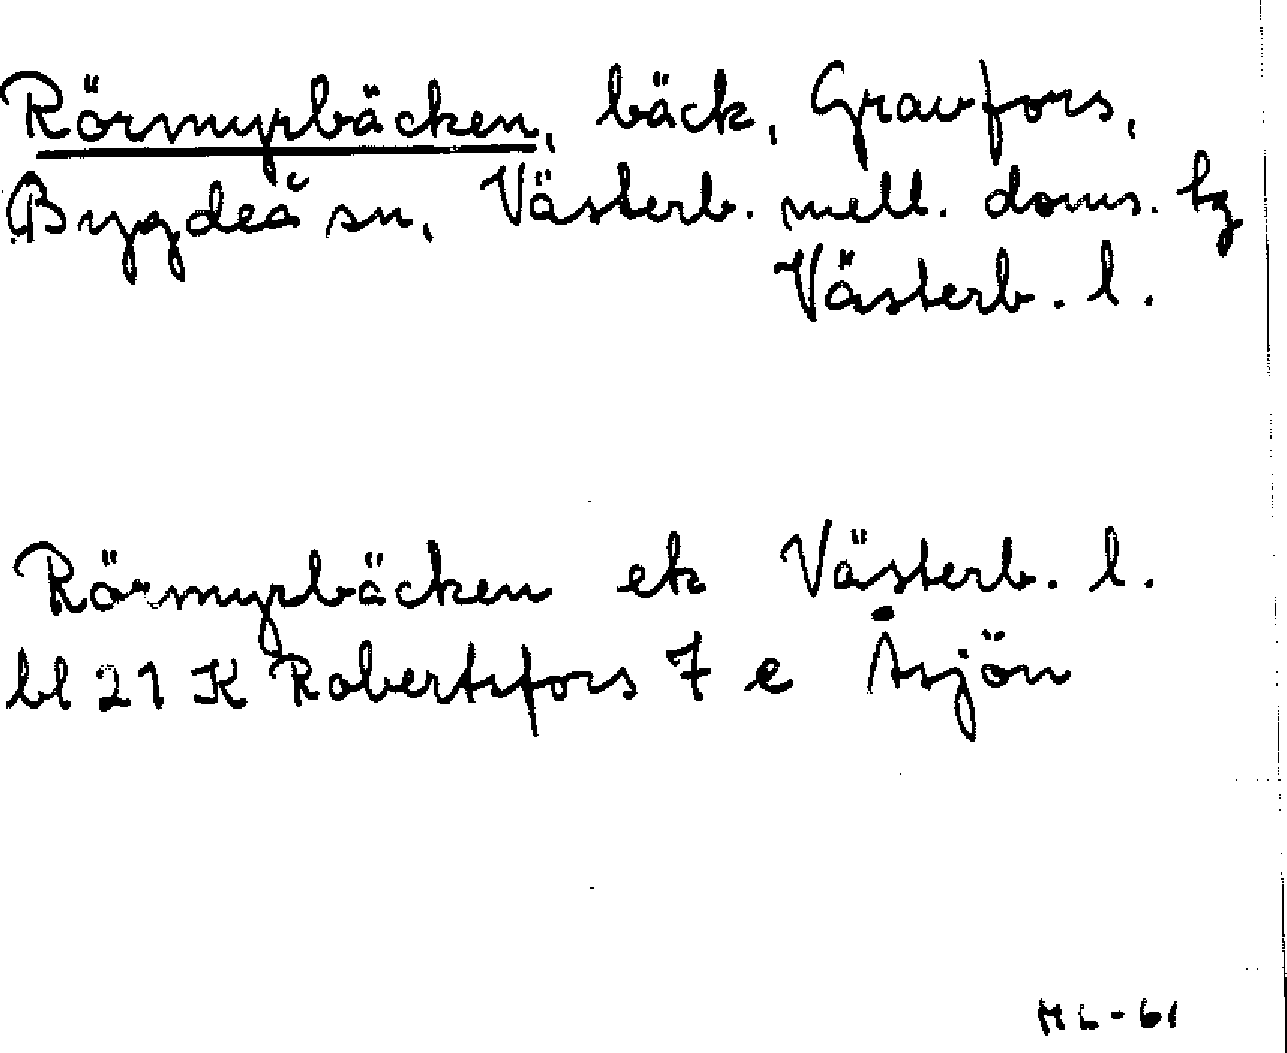 Rörmyrbäcken, bäck, Gravfors,
Bygdeå sn, Västerb. mell. doms. tg
Västerb. l.
Rörmyrbäcken ek Västerb. l.
bl 21 K Robertsfors 7 e Åsjön
ML-61